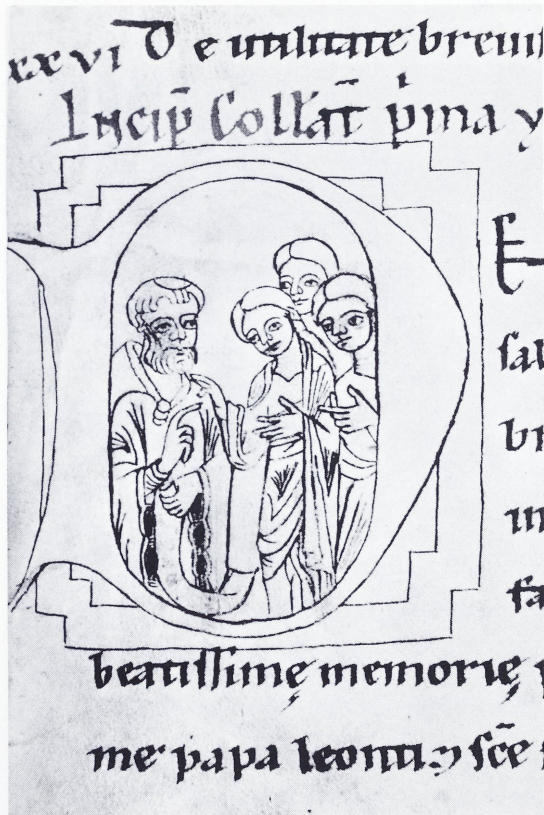 xxvi De utilitate breuis
Incip̄ Collat̄ p̍ma
E
sal
br
in
fa
beatissimę memorię
me papa leontiꝯ sc̄e